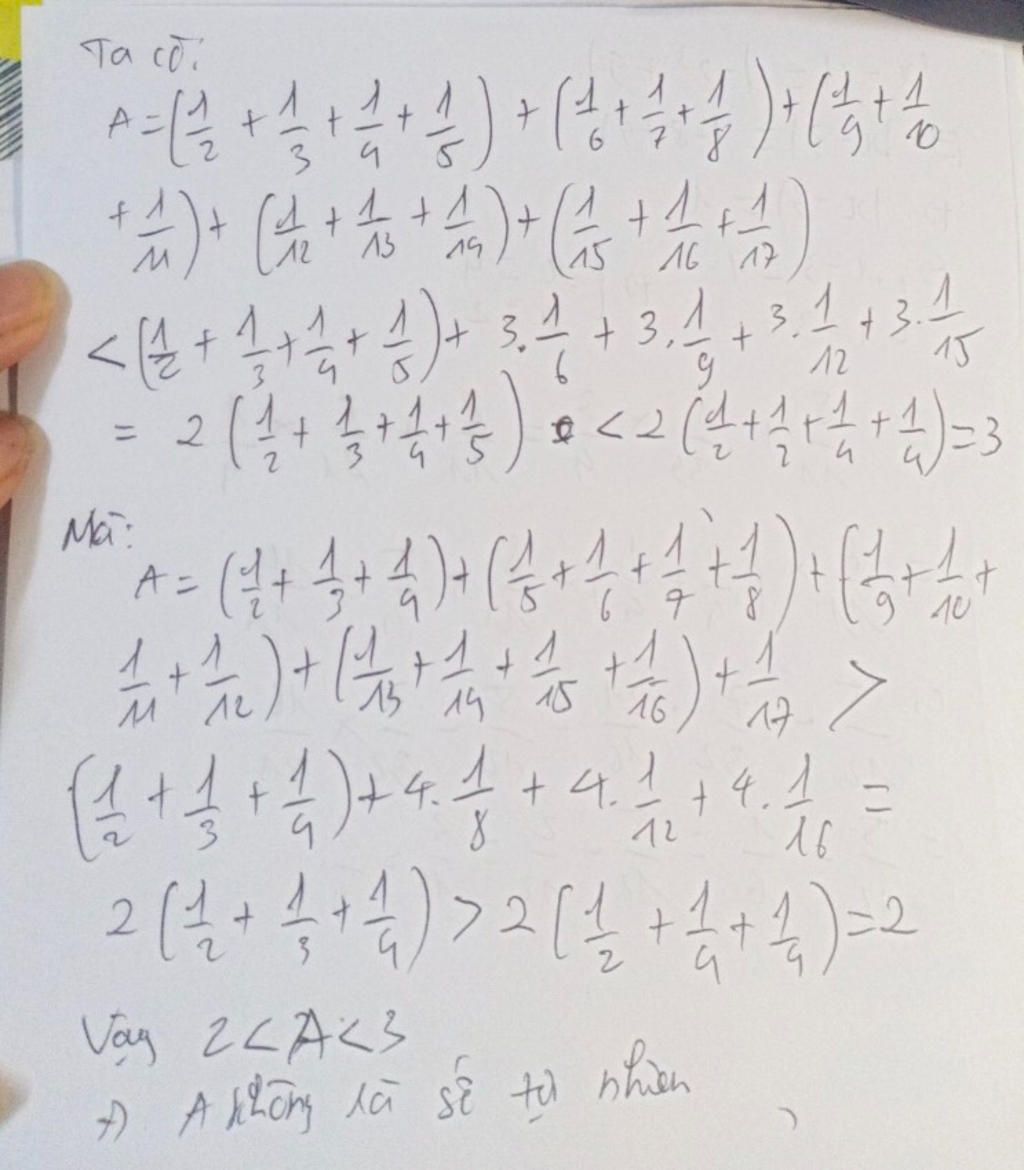 Ta có:
A = (1/2 + 1/3 + 1/4 + 1/5) + (1/6 + 1/7 + 1/8) + (1/9 + 1/10
+ 1/11) + (1/12 + 1/13 + 1/14) + (1/15 + 1/16 + 1/17)
< (1/2 + 1/3 + 1/4 + 1/5) + 3.1/6 + 3.1/9 + 3.1/12 + 3.1/15
= 2 (1/2 + 1/3 + 1/4 + 1/5) < 2 (1/2 + 1/2 + 1/4 + 1/4) = 3
Mà:
A = (1/2 + 1/3 + 1/4) + (1/5 + 1/6 + 1/7 + 1/8) + (1/9 + 1/10 +
1/11 + 1/12) + (1/13 + 1/14 + 1/15 + 1/16) + 1/17 >
(1/2 + 1/3 + 1/4) + 4.1/8 + 4.1/12 + 4.1/16 =
2 (1/2 + 1/3 + 1/4) > 2 (1/2 + 1/4 + 1/4) = 2
Vậy 2 < A < 3
=) A không là số tự nhiên